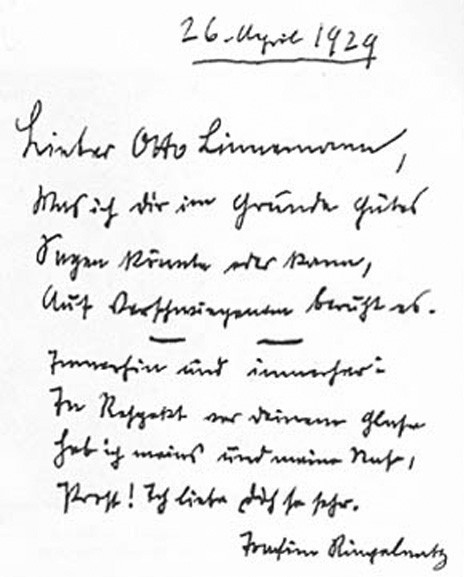 26. April 1929
Lieber Otto Linnemann,
Was ich dir im Grunde Gutes
Sagen könnte oder kann,
Auf Verschwiegenem beruht es.
Immerhin und immerher:
In Respekt vor deinem Glase
Heb ich meins und meine Nase,
Prost! Ich liebe Dich so sehr.
Joachim Ringelnatz